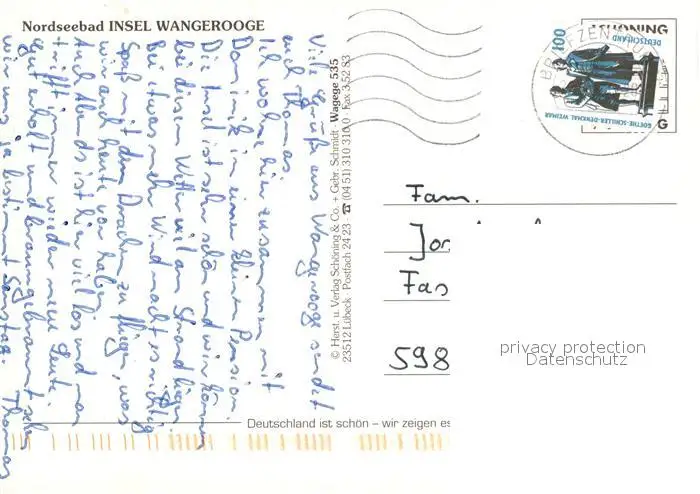 Nordseebad INSEL WANGEROOGE
Viele Grüße aus Wangerooge sendet
euch Thomas.
Ich wohne hier zusammen mit
Dominik in einem kleinen Pension.
Die Insel ist sehr schön und wir können
bei diesem Wetter viel am Strand liegen.
Bei etwas mehr Wind macht es richtig
Spaß mit dem Drachen zu fliegen, was
wir auch heute vor haben.
Auch Abends ist hier viel los und man
trifft immer wieder neue Leute.
gut erholt und braungebrannt sehen
wir uns ja bestimmt Samstag. Thomas
© Herst. u. Verlag Schöning & Co. + Gebr. Schmidt · Wagege 535
23512 Lübeck · Postfach 24 23 · ☎ (04 51) 310 310 · Fax 3 52 53
SCHÖNING
DEUTSCHLAND
100
GOETHE-SCHILLER-DENKMAL WEIMAR
BRIEFZENTRUM
Fam.
Jor
Fas
598
privacy protection
Datenschutz
Deutschland ist schön – wir zeigen es